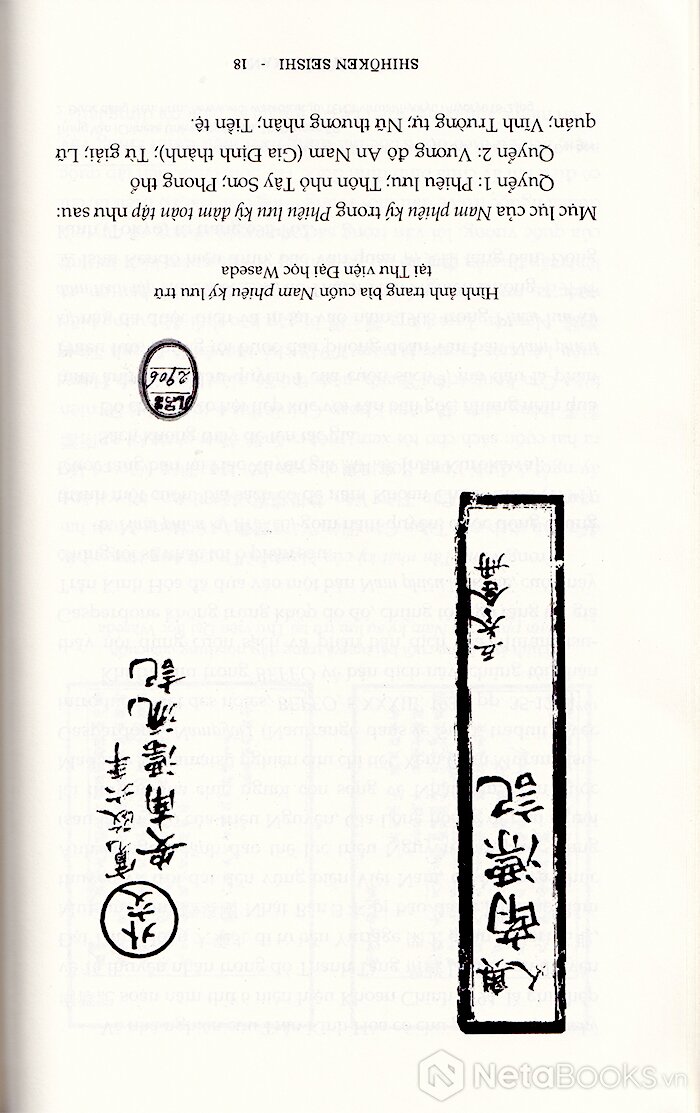 南漂記
外交
寛政六年
安南漂流記
2906
Hình ảnh trang bìa cuốn Nam phiêu ký lưu trữ
tại Thư viện Đại học Waseda
Mục lục của Nam phiêu ký trong Phiêu lưu kỳ đàm toàn tập như sau:
Quyển 1: Phiêu lưu; Thôn nhỏ Tây Sơn; Phong thổ
Quyển 2: Vương đô An Nam (Gia Định thành); Tứ giải; Lữ
quán; Vĩnh Trường tự; Nữ thương nhân; Tiền tệ.
SHIHŌKEN SEISHI - 18
NetaBooks.vn